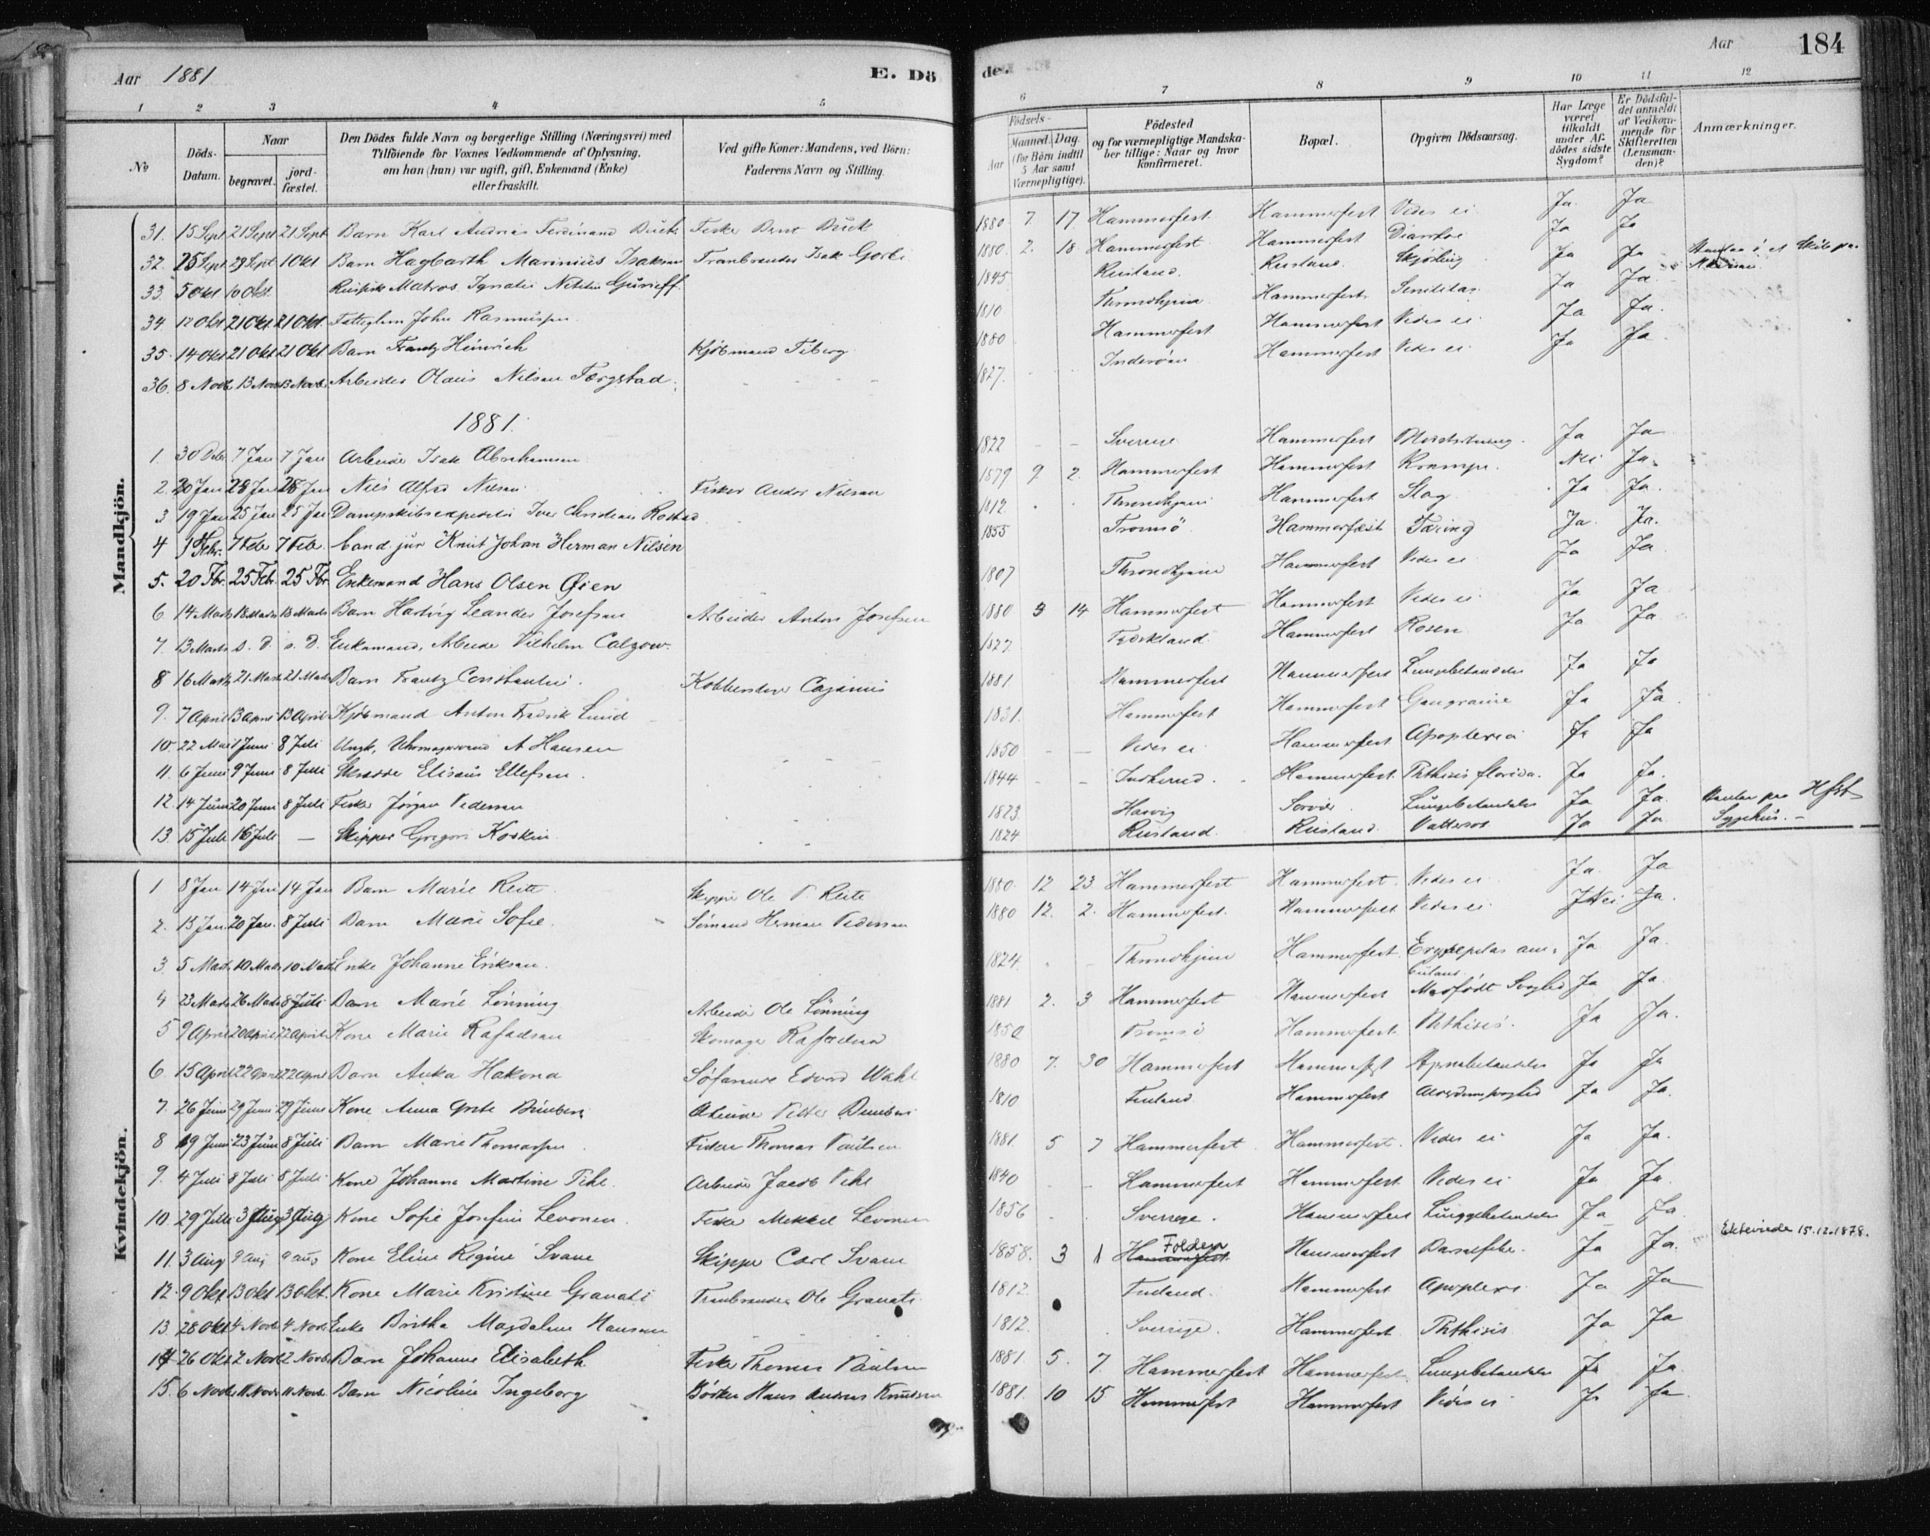 Aar 1881 E. Dö
de. Aar 184
1 2 3 4 5 6 7 8 9 10 11 12
No
Döds-Datum.
Naar
begravet.
jord-fæstet.
Den Dödes fulde Navn og borgerlige Stilling (Næringsvei) med
Tilföiende for Voxnes Vedkommende af Oplysning,
om han (hun) var ugift, gift, Enkemand (Enke)
eller fraskilt.
Ved gifte Koner: Mandens, ved Börn:
Faderens Navn og Stilling.
Födsels-
Aar
Maaned. Dag.
(for Börn indtil
5 Aar samt
Værnepligtige).
Födested
og for værnepligtige Mandska-
ber tillige: Naar og hvor
konfirmeret.
Bopæl.
Opgiven Dödsaarsag.
Har Læge
været
tilkaldt
under Af-
dödes sidste
Sygdom?
Er Dödsfal-
det anmeldt
af Vedkom-
mende for
Skifteretten
(Lensman-
den)?
Anmærkninger.
Mandkjön.
31. 15 Sept 21 Sept 21 Sept Barn Karl Andreas Ferdinand Buck Fisker Bernt Buck 1880 7 17 Hammerfest Hammerfest Vides ei Ja Ja
32. 25 Sept 29 Sept 1 Okt Barn Hagbarth Marinius Isaksen Tranbrender Isak 1880 2. 18 Hammerfest Hammerfest Diarrhoe Ja Ja
33. 5 Okt 10 Okt Matros Ignatei 1845 Rusland Rusland Skjörbug Ja Ja
34 12 Okt 21 Okt 21 Okt. Fattiglem John Rasmussen 1810 Throndhjem Hammerfest Senilitas Ja Ja.
35. 14 Okt 21 Okt 21 Okt Barn Frantz Heinrich Kjöbmand Feberg 1880 Hammerfest Hammerfest Vides ei Ja Ja.
36. 8 Novb. 13 Nov 13 Novb. Arbeider Olaus Nilsen Færgstad 1827. Inderöen Hammerfest Vides ei Ja Ja.
1881.
1. 30 Deb 7 Jan 7 Jan Arbeider Isak Abrahamsen 1822 Sverige Hammerfest Ja Ja
2. 20 Jan 28 Jan 28 Jan Nils Alfred Nilsen Fisker Andor Nilsen 1879 9 2. Hammerfest Hammerfest Krampe Nei Ja.
3 19 Jan 25 Jan 25 Jan Dampskibsexpeditör Iver Christian Rostad 1812 Throndhjem Hammerfest Slag Ja Ja.
4 1 Febr. 7 Feb 7 Feb. Cand. jur Knut Johan Herman Nilsen 1855 Tromsö Hammerfest Tæring Ja. Ja.
5. 20 Fbr. 25 Febr. 25 Fbr. Enkemand Hans Olsen Øien 1807 Throndhjem Hammerfest Vides ei Ja Ja
6 14. Marts 18 Marts 18 Marts Barn Hartvig Leander Josefsen Arbeider Anton Josefsen 1880 3 14 Hammerfest Hammerfest Vides ei Ja Ja
7. 13 Marts s. D. s. D. Enkemand, Arbeider Vilhelm Calgow. 1827 Tydskland Hammerfest Rosen Ja Ja
8 16 Marts 21 Marts 21 Marts Barn Frantz Constantin. Kobberslager Cajanus 1881 Hammerfest Hammerfest Lungebetændelse Ja Ja
9. 7 April 13 April 13 April Kjöbmand Anton Fredrik Lund 1831. Hammerfest Hammerfest Gangraine Ja Ja
10. 22 Mai 1 Juni 8 Juli Ungk. Uhrmagersvend A Hansen 1850 Vides ei Hammerfest Apoplexia Ja Ja
11. 6 Juni 9 Juni 8 Juli Skrædder Elisæus Ellefsen. 1844 Hammerfest Phthisis florida. Ja Ja.
12. 14 Juni 20 Juni 8 Juli Fisker Jörgen Pedersen 1823 Hasvig Sorvær Lungebetændelse Ja Ja. Hfst
13. 15 Juli 16 Juli — Skipper Gregori Koskin 1824 Rusland Rusland Vattersot Ja Ja. Sygehus. —
Kvindekjön.
1 8 Jan 14 Jan 14 Jan Barn Marie Reite Skipper Ole P. Reite 1880. 12 23 Hammerfest Hammerfest. Vides ei Ja. Ja
2. 13 Jan 20 Jan. 8 Juli Barn Marie Sofie. Sömand Herman Pedersen 1880 12. 2. Hammerfest. Hammerfest Vides ei Nei Ja.
3. 5 Marts 10 Marts 10 Marts Enke Johanne Eriksen. 1824. Throndhjem Hammerfest. Erysipelas am- Ja Ja.
bulans.
4 23 Marts 26 Marts 8 Juli Barn Marie Lönning Arbeider Ole Lönning 1881 2. 3 Hammerfest Hammerfest Medfödt Svaghed Ja Ja.
5 9 April 20 April 22 April Kone Marie Rafaelsen Skomager Rafaelsen 1850 Tromsö Hammerfest. Phthisis. Ja Ja.
6. 15 April 22 April 22 April Barn Anka Hakona Söfarende Edvard Wahl 1880 7. 30 Hammerfest Hammerfest Ja Ja
7. 26 Juni 29 Juni 29 Juni Kone Anna Grete 1810 Finland Hammerfest Alderdomssvaghed Ja Ja.
8 19 Juni 23 Juni 8 Juli Barn Marie Thomassen Fisker Thomas Paulsen 1881 5 7 Hammerfest Hammerfest. Vides ei Ja Ja.
9. 4 Juli 8 Juli 8 Juli Kone Johanna Martine Pihl. Arbeider Jacob Pihl 1840 Hammerfest Hammerfest Vides ei Ja Ja.
10. 29 Juli 3 Aug 3 Aug Kone Sofie Josefine Levonen. Fisker Mikkel Levonen 1856 Sverrige. Hammerfest Lungebetændelse Ja Ja.
11. 3 Aug 9 aug 9 aug Kone Eline Regine Svane Skipper Carl Svane 1858. 3 1 Hammerfest Folden Hammerfest Barselfeber. Ja Ja. Ektevieede 15.12.1878.
12. 9 Okt 13 Okt 13 Okt. Kone Marie Kristine Granati Tranbrender Ole Granati 1812. Finland. Hammerfest Apoplexi Ja Ja
13. 28 Okt 4 Novb 4 Novb. Enke Britha Magdalene Hansen 1812. Sverrige. Hammerfest. Phthisis Ja Ja
14 26 Okt 2 Novb 2 Novb. Barn Johanne Elisabeth Fisker Thomas Paulsen 1881. 5. 7. Hammerfest Hammerfest. Lungebetændelse Ja Ja.
15. 6 Novb. 11 Novb. 11 Novb. Barn Nicoline Ingeborg Bödker Hans Andreas Knudsen 1881. 10 15 Hammerfest Hammerfest Vides ei Ja Ja